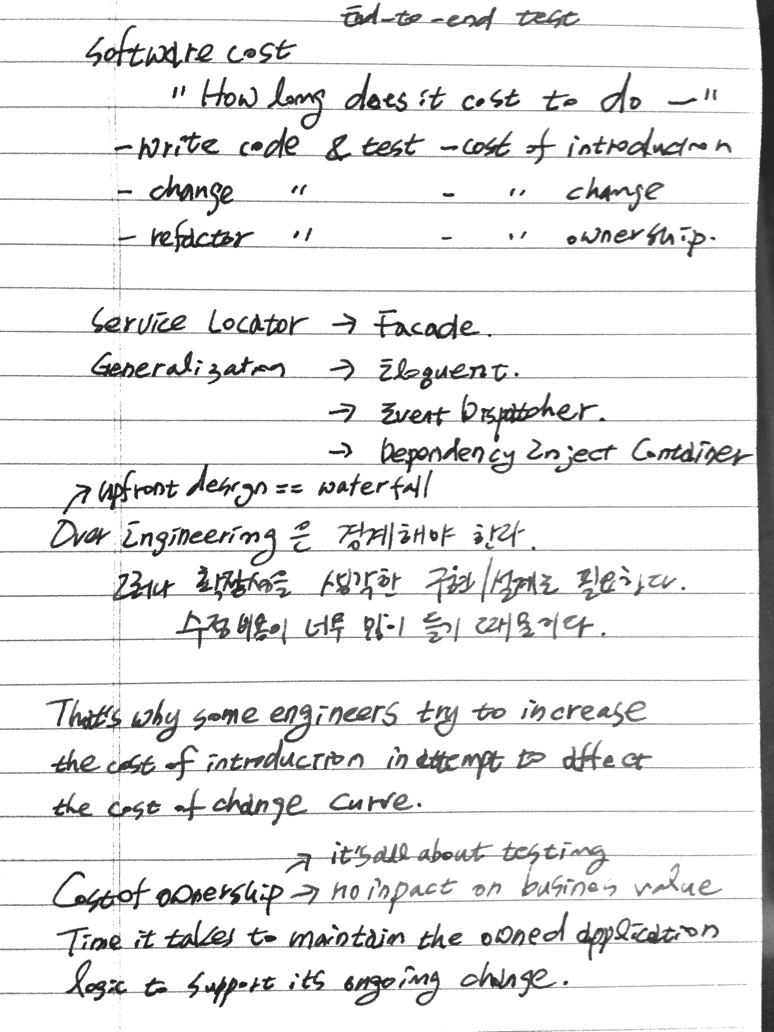 End-to-end test
Software cost
" How long does it cost to do — "
- Write code & test - cost of introduction
- change " - " change
- refactor " - " ownership.
Service Locator → Facade.
Generalization → Eloquent.
→ Event Dispatcher.
→ Dependency Inject Container
↗ upfront design == waterfall
Over Engineering은 경계해야 한다.
그러나 확장성을 생각한 구현/설계도 필요하다.
수정 비용이 너무 많이 들기 때문이다.
That's why some engineers try to increase
the cost of introduction in attempt to affect
the cost of change curve.
↗ it's all about testing
Cost of ownership → no inpact on busines value
Time it takes to maintain the owned application
logic to support its ongoing change.